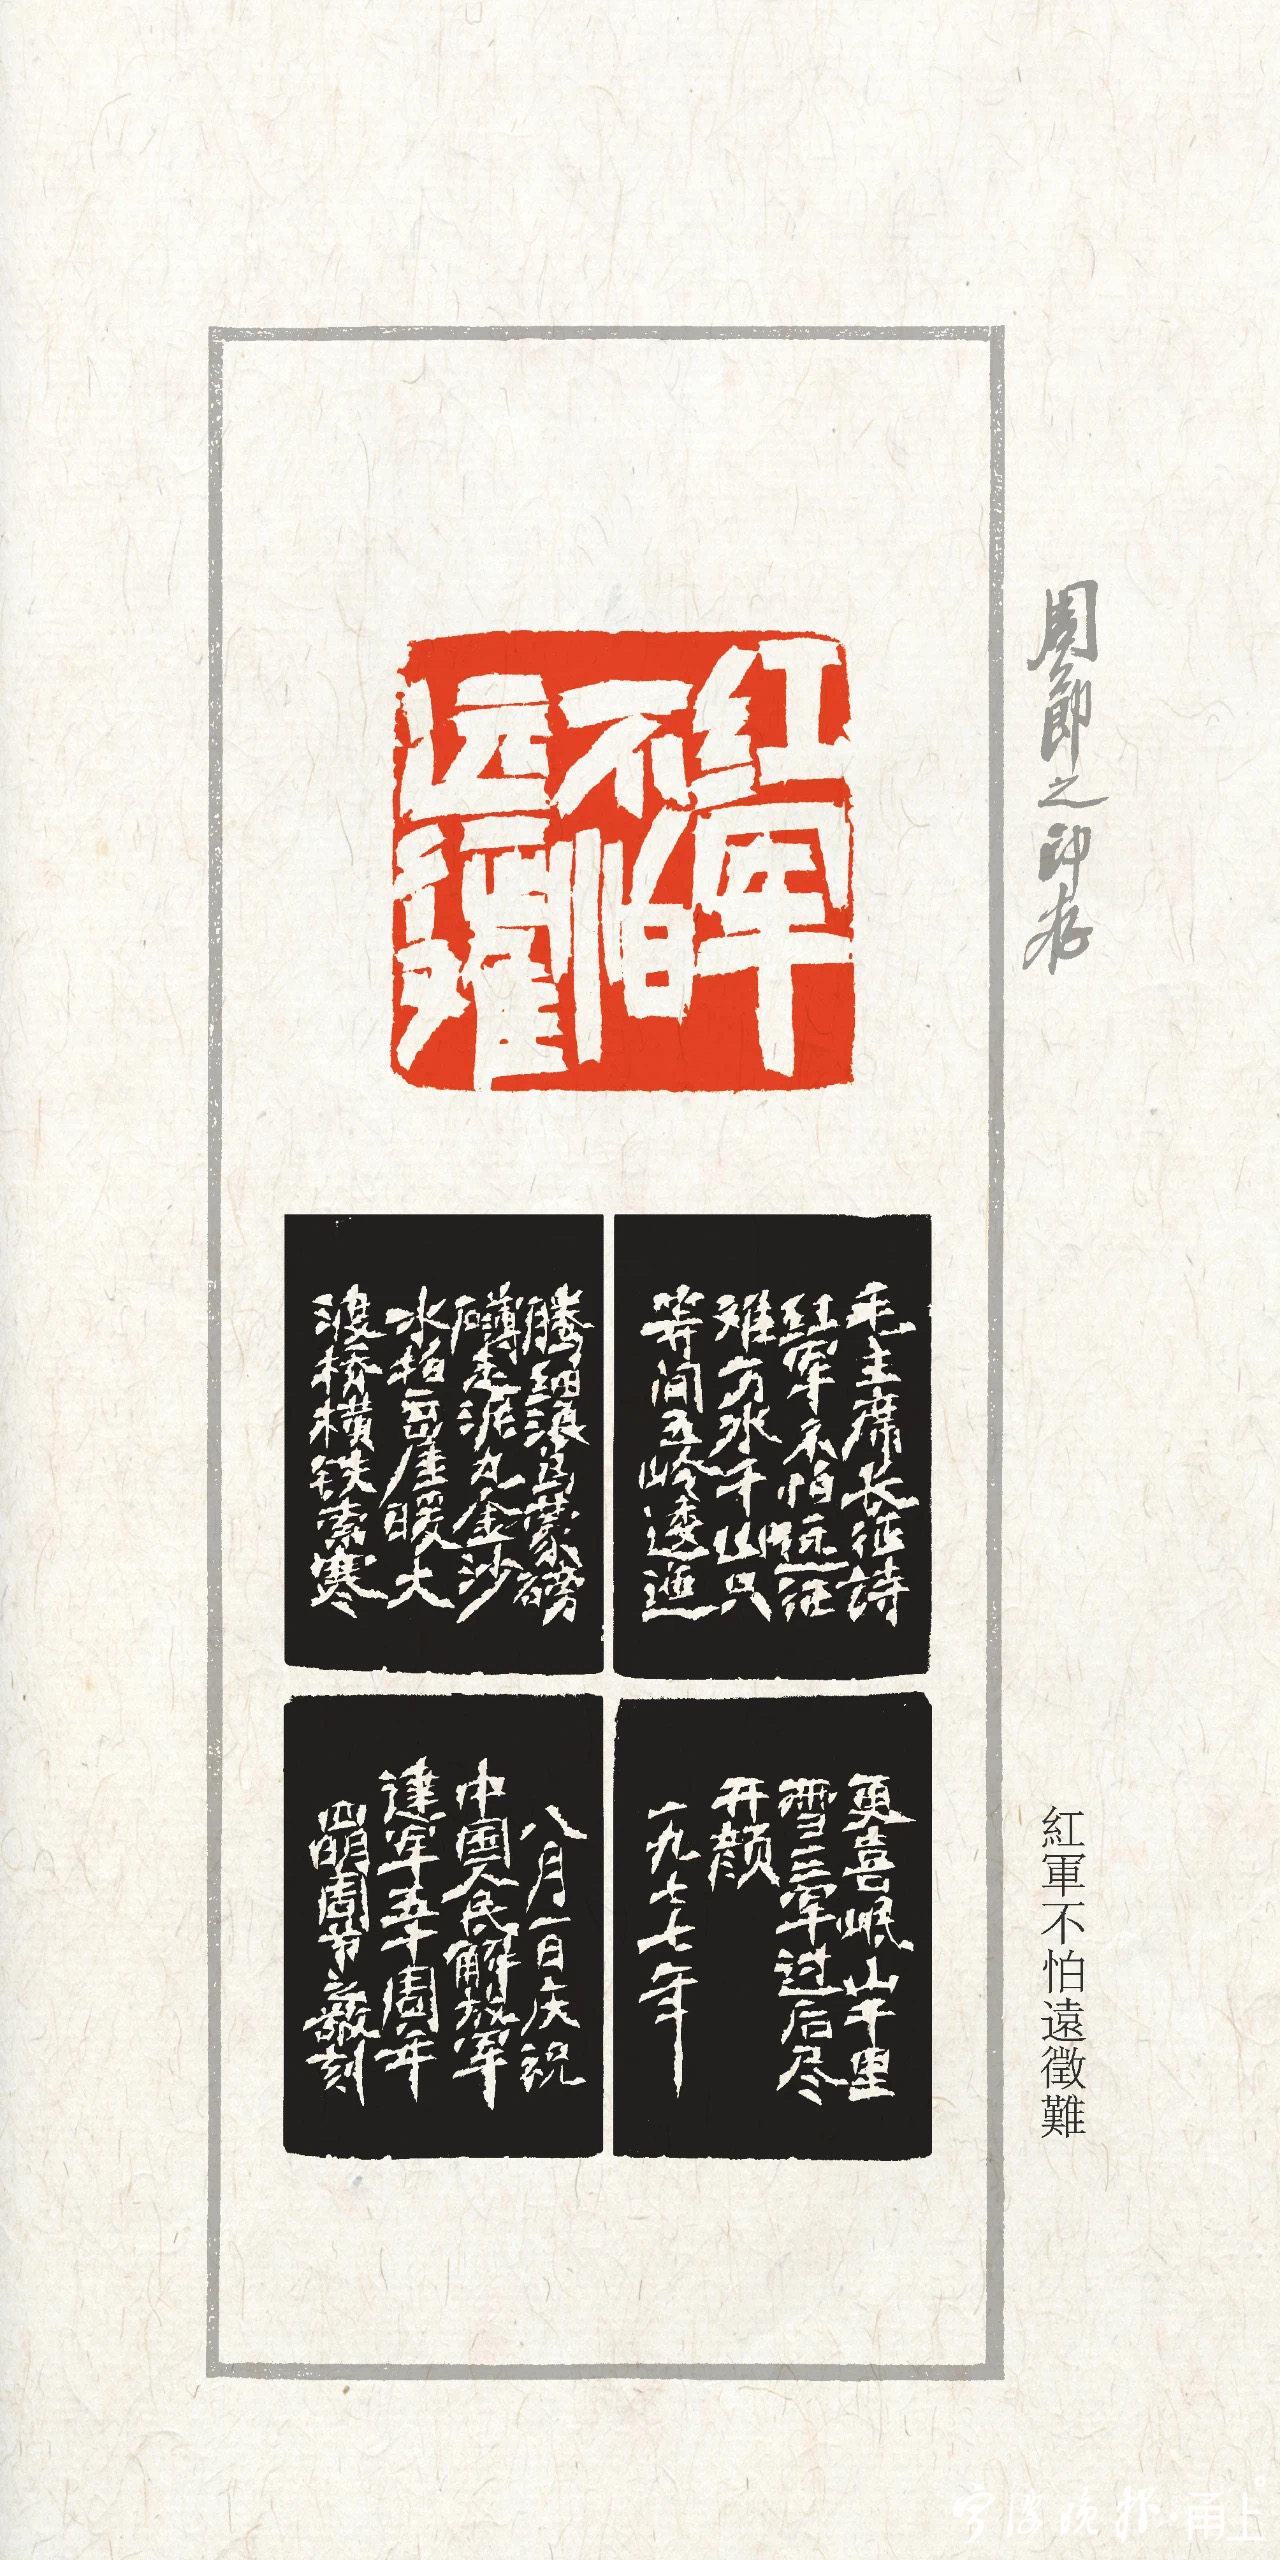 周節之印存
红军
不怕
远征难
毛主席长征詩
红军不怕远征
难万水千山只
等间五岭逶迤
腾细浪乌蒙磅
礴走泥丸金沙
水拍云崖暖大
渡桥横铁索寒
更喜岷山千里
雪三军过后尽
开颜
一九七七年
八月一日庆祝
中国人民解放军
建军五十周年
四明周节之敬刻
紅軍不怕遠徵難
宁波晚报·甬上